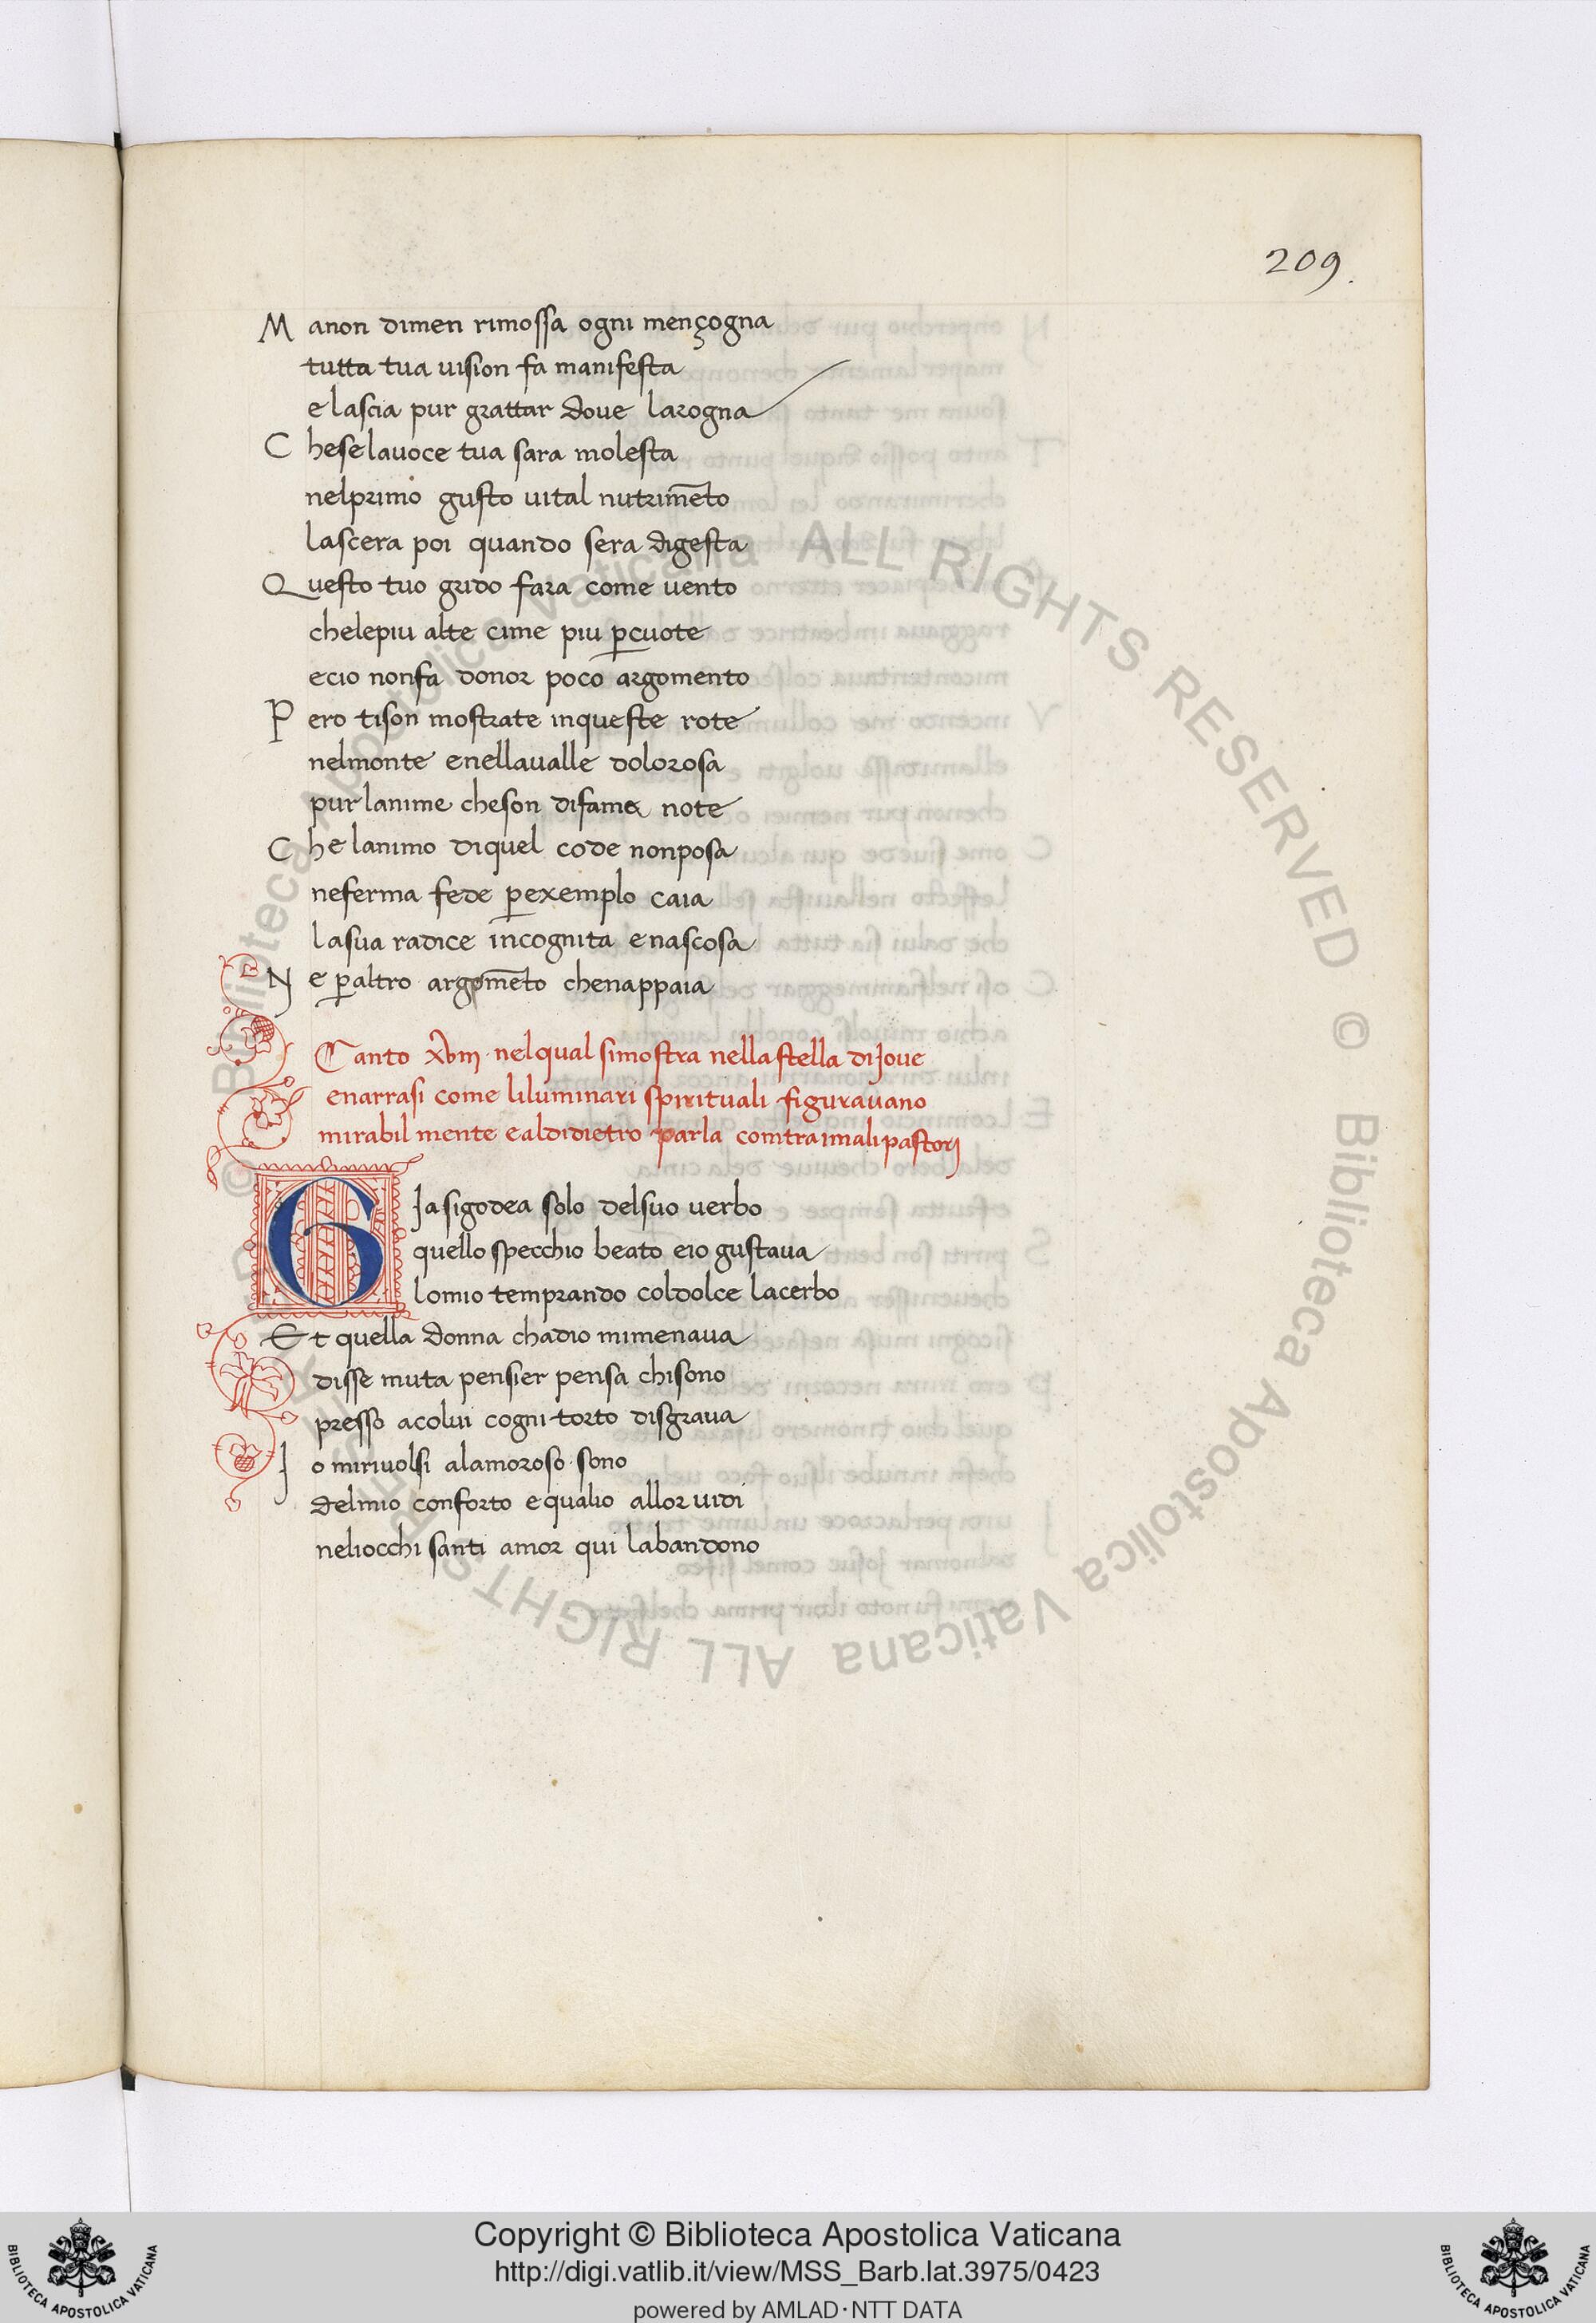 209.
M anon dimen rimossa ogni mençogna
tutta tua uision fa manifesta
e lascia pur grattar doue larogna
C hese lauoce tua sara molesta
nelprimo gusto uital nutrim̄eto
lascera poi quando sera digesta
Q uesto tuo grido fara come uento
chelepiu alte cime piu ꝑcuote
ecio nonfa donor poco argomento
P ero tison mostrate inqueste rote
nelmonte enellaualle dolorosa
pur lanime cheson difama note
C he lanimo diquel code nonposa
neferma fede ꝑexemplo caia
lasua radice incognita enascosa
N e ꝑaltro argom̄eto chenappaia
Canto xviij nelqual simostra nella stella di Joue
enarrasi come liluminari spirituali figurauano
mirabil mente ealdidietro parla comtraimali pastorj
G Ja sigodea solo delsuo uerbo
quello specchio beato eio gustaua
lomio temprando coldolce lacerbo
Et quella donna chadio mimenaua
disse muta pensier pensa chisono
presso acolui cogni torto disgraua
J o miriuolsi alamoroso sono
delmio conforto equalio allor uidi
neliocchi santi amor qui labandono
© Biblioteca Apostolica Vaticana ALL RIGHTS RESERVED © Biblioteca Apostolica Vaticana ALL RIGHTS RESERVED
Copyright © Biblioteca Apostolica Vaticana
http://digi.vatlib.it/view/MSS_Barb.lat.3975/0423
powered by AMLAD·NTT DATA
BIBLIOTECA APOSTOLICA VATICANA
BIBLIOTECA APOSTOLICA VATICANA